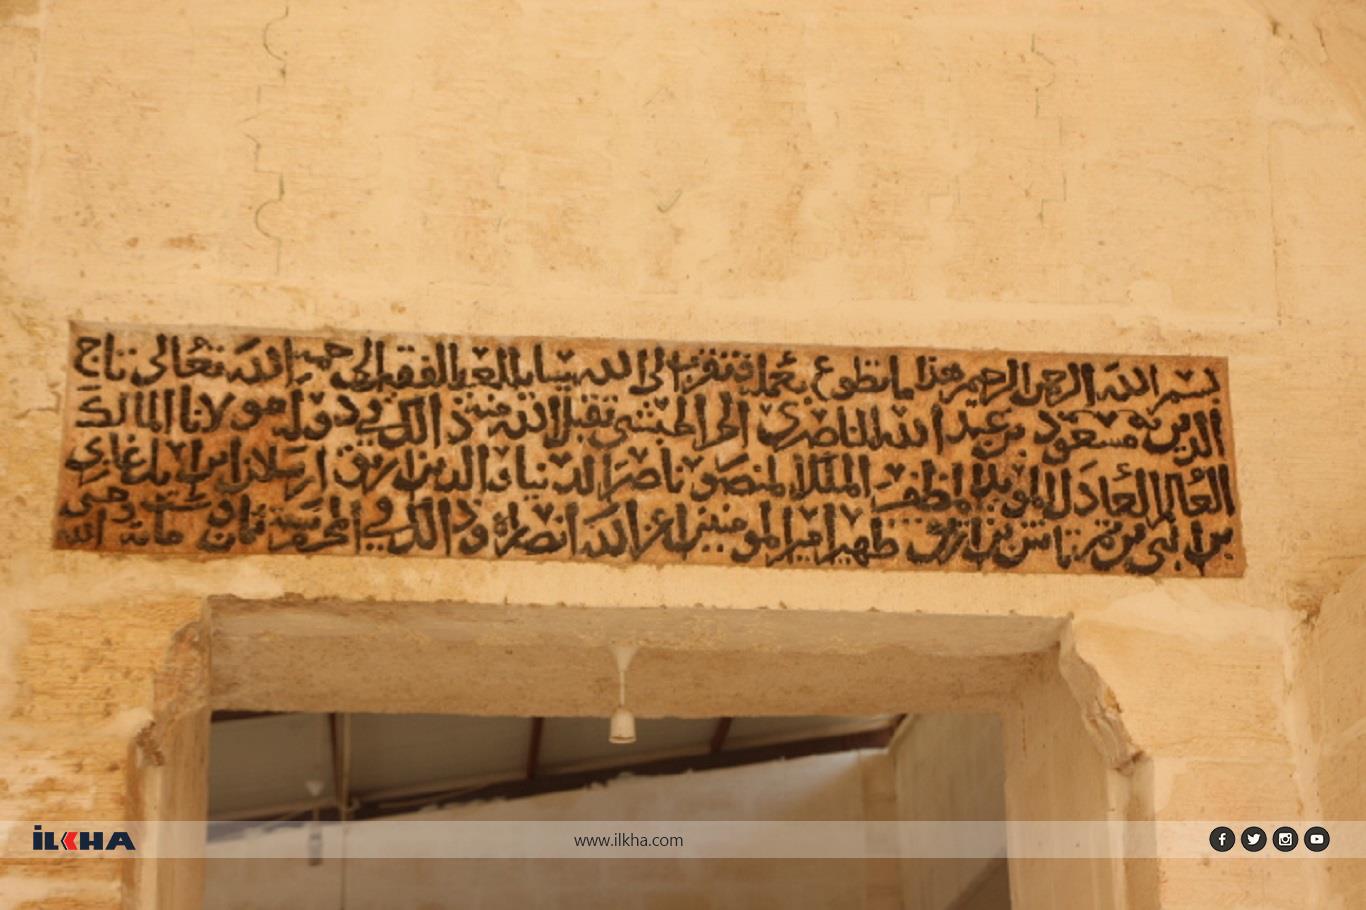 بسم الله الرحمن الرحيم هذا ما تطوع بعمله وتقرب الى الله العبد الفقير الى رحمة الله تعالى تاج
الدين مسعود بن عبد الله الناصري الحبشي تقبل الله منه وذلك في دولة مولانا الملك
العالم العادل المويد المظفر الملك المنصور ناصر الدنيا والدين ارتق ارسلان بن ايل غازي
بن البي بن تمرتاش بن ارتق ظهير امير المومنين اعز الله انصاره وذلك في المحرم سنة
İLKHA
www.ilkha.com